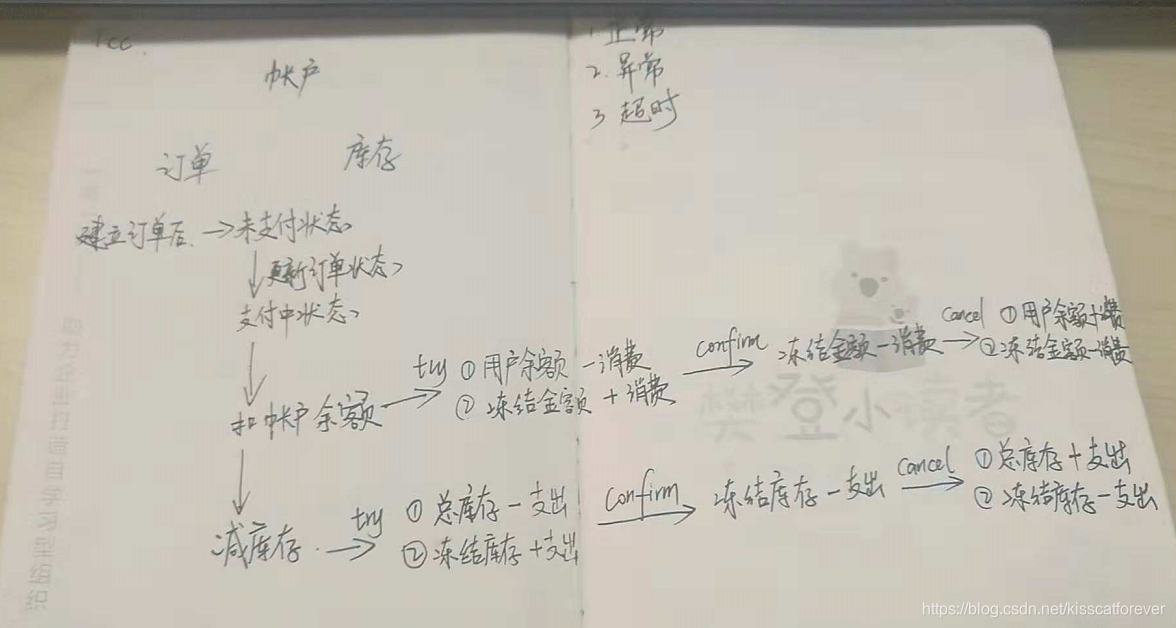 Tcc.
帐户
订单
库存
建立订单后. →未支付状态
↓更新订单状态
支付中状态
↓
扣帐户余额 → try ① 用户余额 - 消费
② 冻结金额 + 消费
↓
减库存. → try ① 总库存 - 支出
② 冻结库存 + 支出
1. 正常
2. 异常
3 超时
confirm → 冻结金额 - 消费 cancel → ① 用户余额+消费
② 冻结金额 - 消费
confirm → 冻结库存 - 支出 cancel → ① 总库存 + 支出
② 冻结库存 - 支出
樊登小读者
助力企业打造自学习型组织
https://blog.csdn.net/kisscatforever